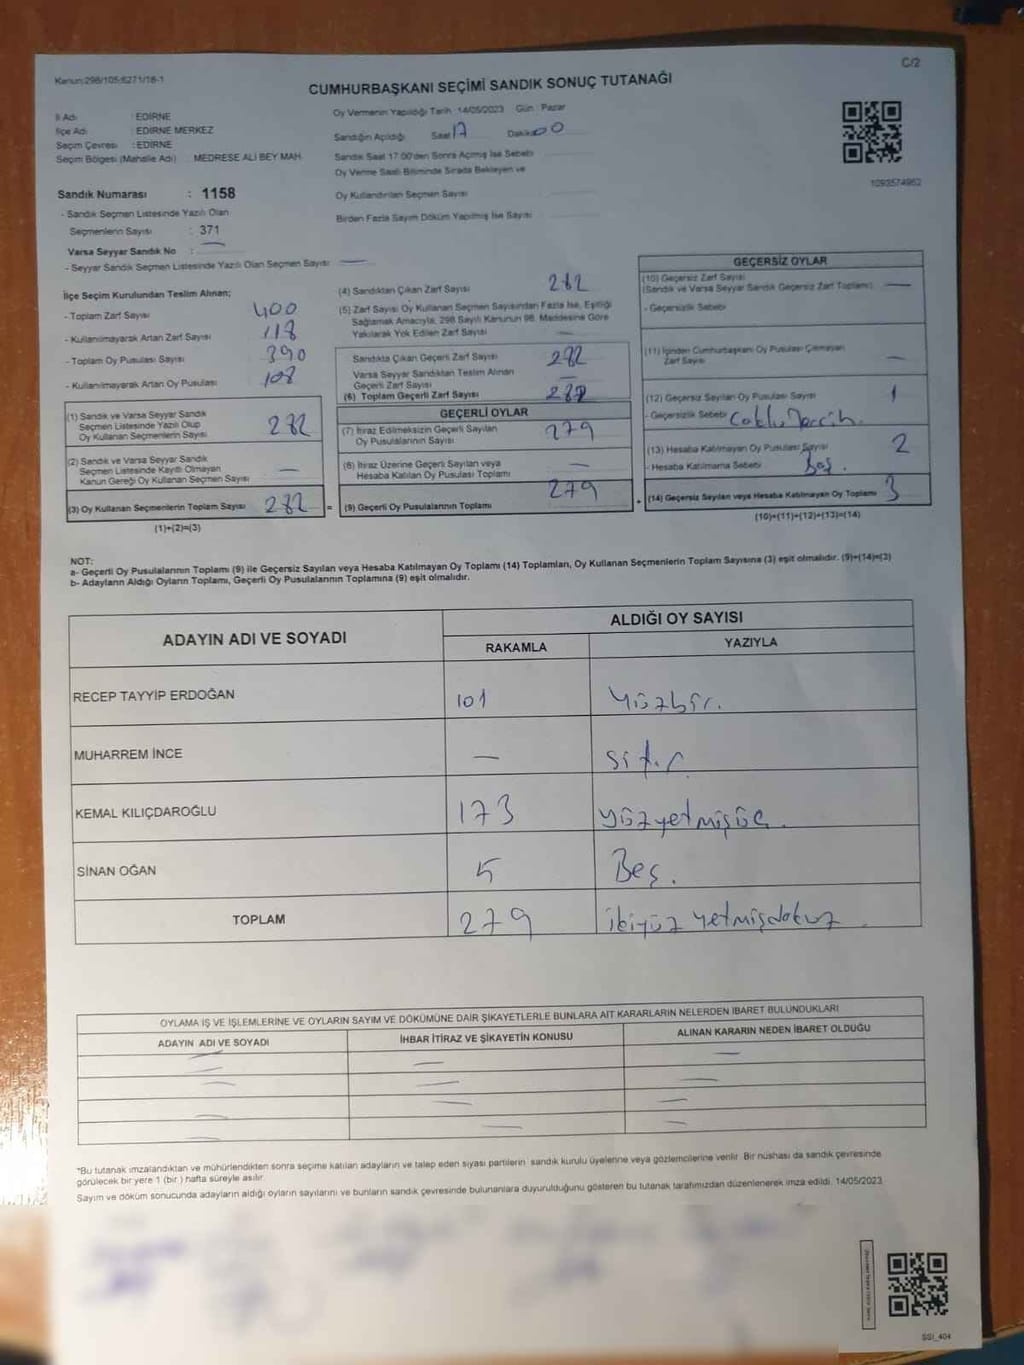 Kanun:298/105:6271/18-1
C/2
CUMHURBAŞKANI SEÇİMİ SANDIK SONUÇ TUTANAĞI
İl Adı : EDİRNE
İlçe Adı : EDİRNE MERKEZ
Seçim Çevresi : EDİRNE
Seçim Bölgesi (Mahalle Adı) MEDRESE ALİ BEY MAH.
Sandık Numarası : 1158
- Sandık Seçmen Listesinde Yazılı Olan
Seçmenlerin Sayısı : 371
Varsa Seyyar Sandık No :
- Seyyar Sandık Seçmen Listesinde Yazılı Olan Seçmen Sayısı
Oy Vermenin Yapıldığı Tarih :14/05/2023 Gün : Pazar
Sandığın Açıldığı Saat 17 Dakika 00
Sandık Saat 17:00'den Sonra Açılmış İse Sebebi
Oy Verme Saati Bitiminde Sırada Bekleyen ve
Oy Kullandırılan Seçmen Sayısı
Birden Fazla Sayım Döküm Yapılmış İse Sayısı
1093574962
İlçe Seçim Kurulundan Teslim Alınan;
- Toplam Zarf Sayısı 400
- Kullanılmayarak Artan Zarf Sayısı 118
- Toplam Oy Pusulası Sayısı 390
- Kullanılmayarak Artan Oy Pusulası 108
(1) Sandık ve Varsa Seyyar Sandık
Seçmen Listesinde Yazılı Olup
Oy Kullanan Seçmenlerin Sayısı 282
(2) Sandık ve Varsa Seyyar Sandık
Seçmen Listesinde Kayıtlı Olmayan
Kanun Gereği Oy Kullanan Seçmen Sayısı —
(3) Oy Kullanan Seçmenlerin Toplam Sayısı 282
(1)+(2)=(3)
(4) Sandıktan Çıkan Zarf Sayısı 282
(5) Zarf Sayısı Oy Kullanan Seçmen Sayısından Fazla İse, Eşitliği
Sağlamak Amacıyla, 298 Sayılı Kanunun 98. Maddesine Göre
Yakılarak Yok Edilen Zarf Sayısı —
Sandıkta Çıkan Geçerli Zarf Sayısı 282
Varsa Seyyar Sandıktan Teslim Alınan
Geçerli Zarf Sayısı —
(6) Toplam Geçerli Zarf Sayısı 282
GEÇERLİ OYLAR
(7) İtiraz Edilmeksizin Geçerli Sayılan
Oy Pusulalarının Sayısı 279
(8) İtiraz Üzerine Geçerli Sayılan veya
Hesaba Katılan Oy Pusulası Toplamı —
= (9) Geçerli Oy Pusulalarının Toplamı 279
GEÇERSİZ OYLAR
(10) Geçersiz Zarf Sayısı
(Sandık ve Varsa Seyyar Sandık Geçersiz Zarf Toplamı) —
- Geçersizlik Sebebi
(11) İçinden Cumhurbaşkanı Oy Pusulası Çıkmayan
Zarf Sayısı —
(12) Geçersiz Sayılan Oy Pusulası Sayısı 1
- Geçersizlik Sebebi Çoklu Tercih.
(13) Hesaba Katılmayan Oy Pusulası Sayısı 2
- Hesaba Katılmama Sebebi Boş.
+ (14) Geçersiz Sayılan veya Hesaba Katılmayan Oy Toplamı 3
(10)+(11)+(12)+(13)=(14)
NOT:
a- Geçerli Oy Pusulalarının Toplamı (9) ile Geçersiz Sayılan veya Hesaba Katılmayan Oy Toplamı (14) Toplamları, Oy Kullanan Seçmenlerin Toplam Sayısına (3) eşit olmalıdır. (9)+(14)=(3)
b- Adayların Aldığı Oyların Toplamı, Geçerli Oy Pusulalarının Toplamına (9) eşit olmalıdır.
ADAYIN ADI VE SOYADI ALDIĞI OY SAYISI
RAKAMLA YAZIYLA
RECEP TAYYİP ERDOĞAN 101 Yüzbir.
MUHARREM İNCE — sıfır
KEMAL KILIÇDAROĞLU 173 yüzyetmişüç.
SİNAN OĞAN 5 Beş.
TOPLAM 279 ikiyüz yetmişdokuz.
OYLAMA İŞ VE İŞLEMLERİNE VE OYLARIN SAYIM VE DÖKÜMÜNE DAİR ŞİKAYETLERLE BUNLARA AİT KARARLARIN NELERDEN İBARET BULUNDUKLARI
ADAYIN ADI VE SOYADI İHBAR İTİRAZ VE ŞİKAYETİN KONUSU ALINAN KARARIN NEDEN İBARET OLDUĞU
*Bu tutanak imzalandıktan ve mühürlendikten sonra seçime katılan adayların ve talep eden siyasi partilerin sandık kurulu üyelerine veya gözlemcilerine verilir. Bir nüshası da sandık çevresinde
görülecek bir yere 1 (bir ) hafta süreyle asılır.
Sayım ve döküm sonucunda adayların aldığı oyların sayılarını ve bunların sandık çevresinde bulunanlara duyurulduğunu gösteren bu tutanak tarafımızdan düzenlenerek imza edildi. 14/05/2023
SSI_404